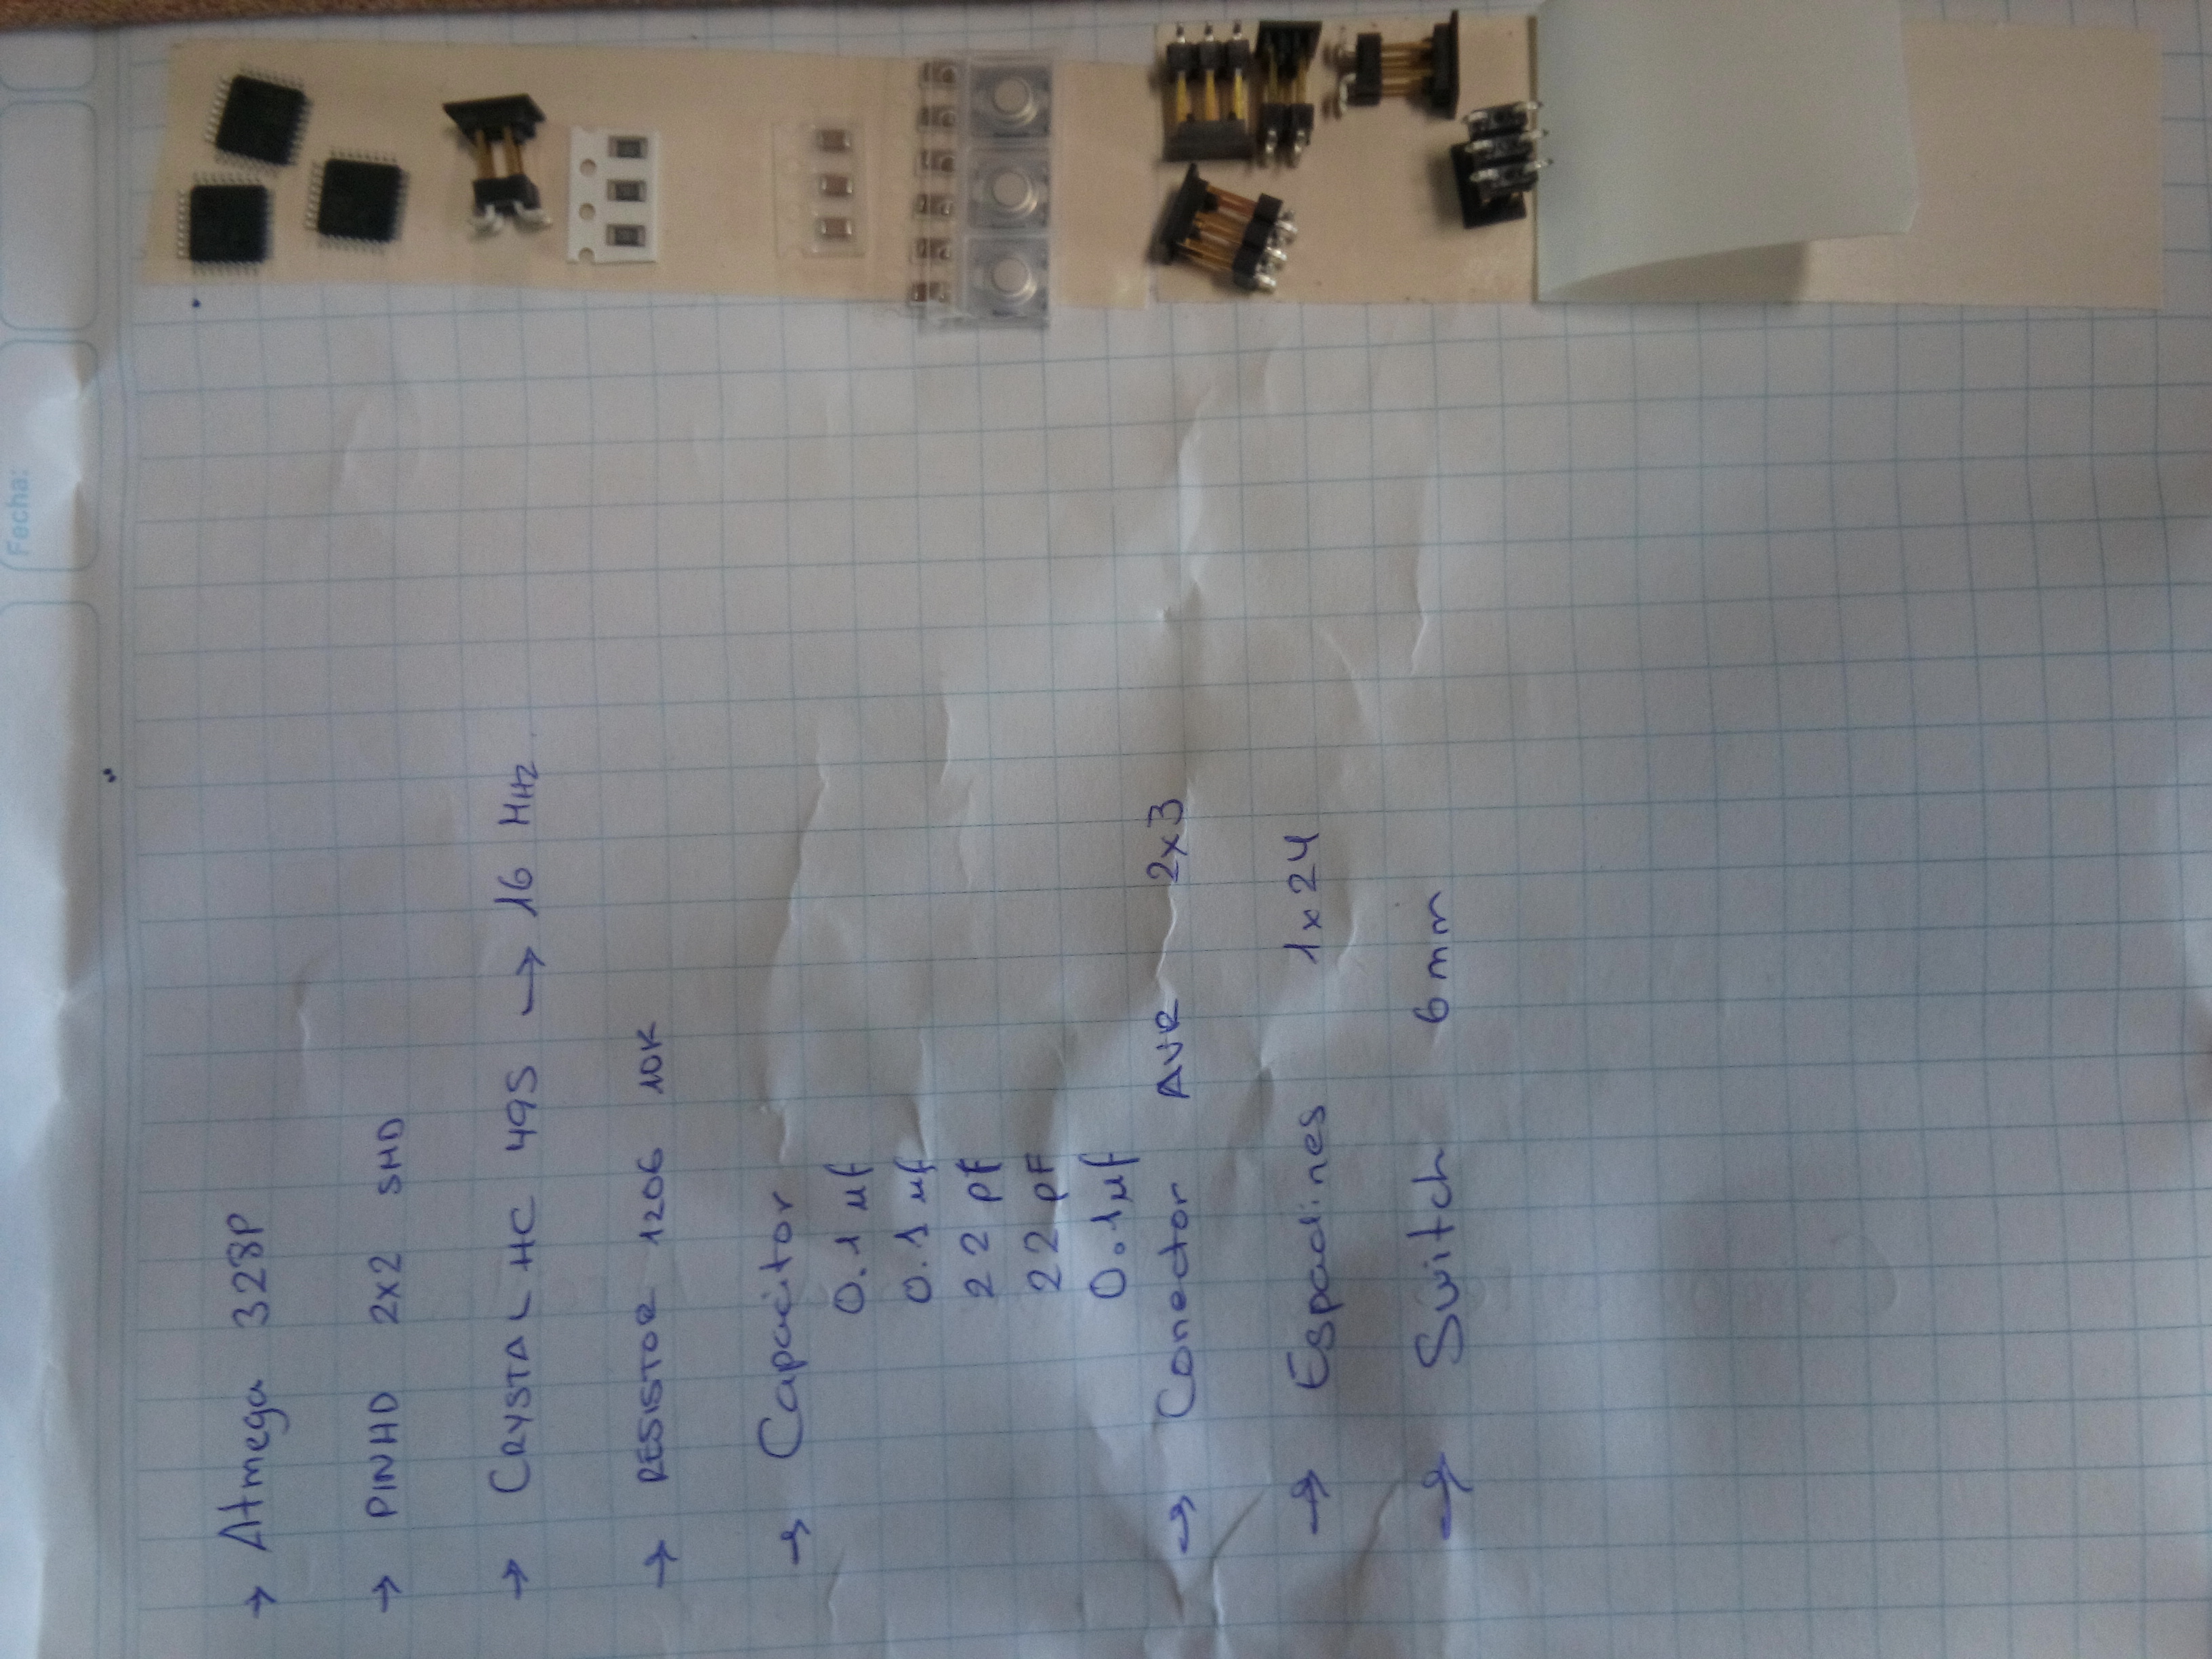 Fecha:
→ Atmega 328P
→ PINHD 2x2 SMD
→ CRYSTAL HC 49S → 16 MHz
→ RESISTOR 1206 10K
→ Capacitor
0.1 uf
0.1 uf
22 pf
22 pF
0.1uf
→ Conector AVR 2x3
→ Espadines 1x24
→ Switch 6mm